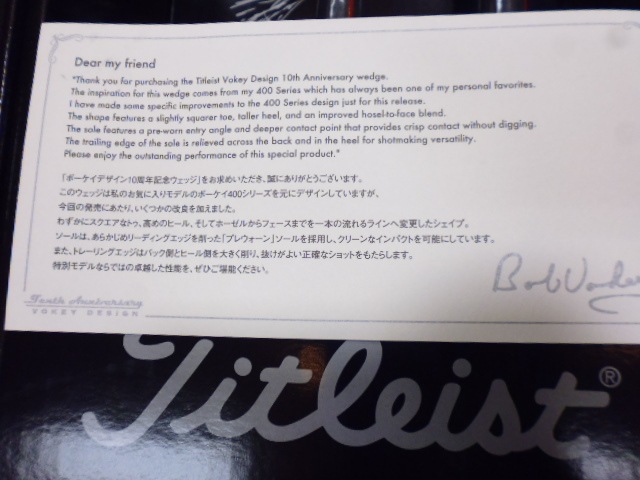 Dear my friend
"Thank you for purchasing the Titleist Vokey Design 10th Anniversary wedge.
The inspiration for this wedge comes from my 400 Series which has always been one of my personal favorites.
I have made some specific improvements to the 400 Series design just for this release.
The shape features a slightly squarer toe, taller heel, and an improved hosel-to-face blend.
The sole features a pre-worn entry angle and deeper contact point that provides crisp contact without digging.
The trailing edge of the sole is relieved across the back and in the heel for shotmaking versatility.
Please enjoy the outstanding performance of this special product."
「ボーケイデザイン10周年記念ウェッジ」をお求めいただき、誠にありがとうございます。
このウェッジは私のお気に入りモデルのボーケイ400シリーズを元にデザインしていますが、
今回の発売にあたり、いくつかの改良を加えました。
わずかにスクエアなトゥ、高めのヒール、そしてホーゼルからフェースまでを一本の流れるラインへ変更したシェイプ。
ソールは、あらかじめリーディングエッジを削った「プレウォーン」ソールを採用し、クリーンなインパクトを可能にしています。
また、トレーリングエッジはバック側とヒール側を大きく削り、抜けがよい正確なショットをもたらします。
特別モデルならではの卓越した性能を、ぜひご堪能ください。
Bob Vokey
Tenth Anniversary
VOKEY DESIGN
Titleist®